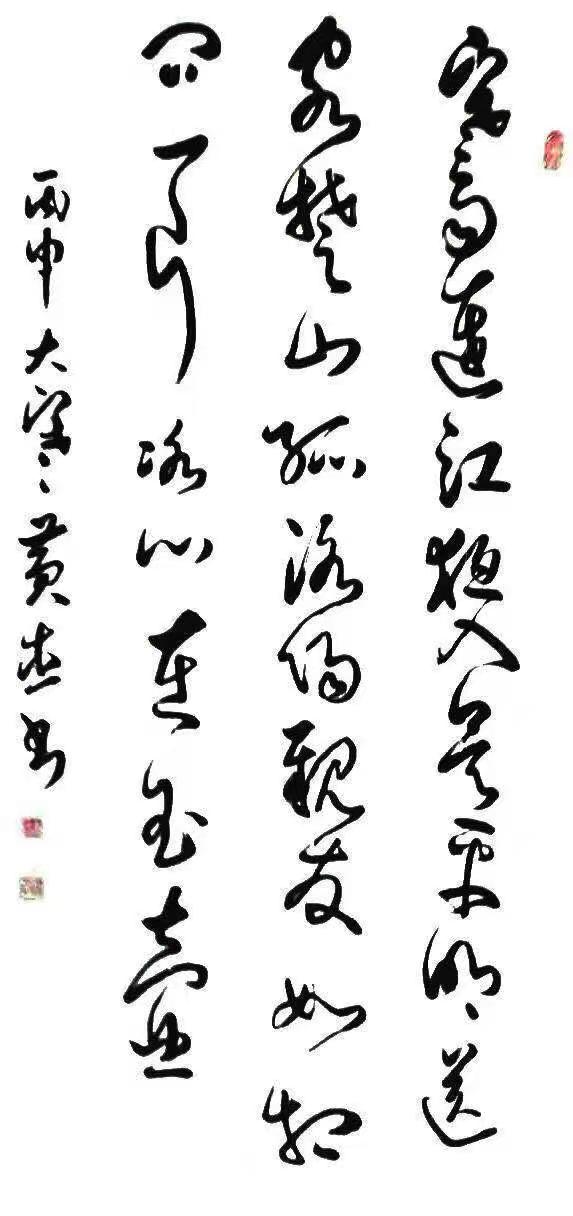 寒雨連江夜入吴平明送
客楚山孤洛陽親友如相
问一片冰心在玉壺
丙申大寒黄书